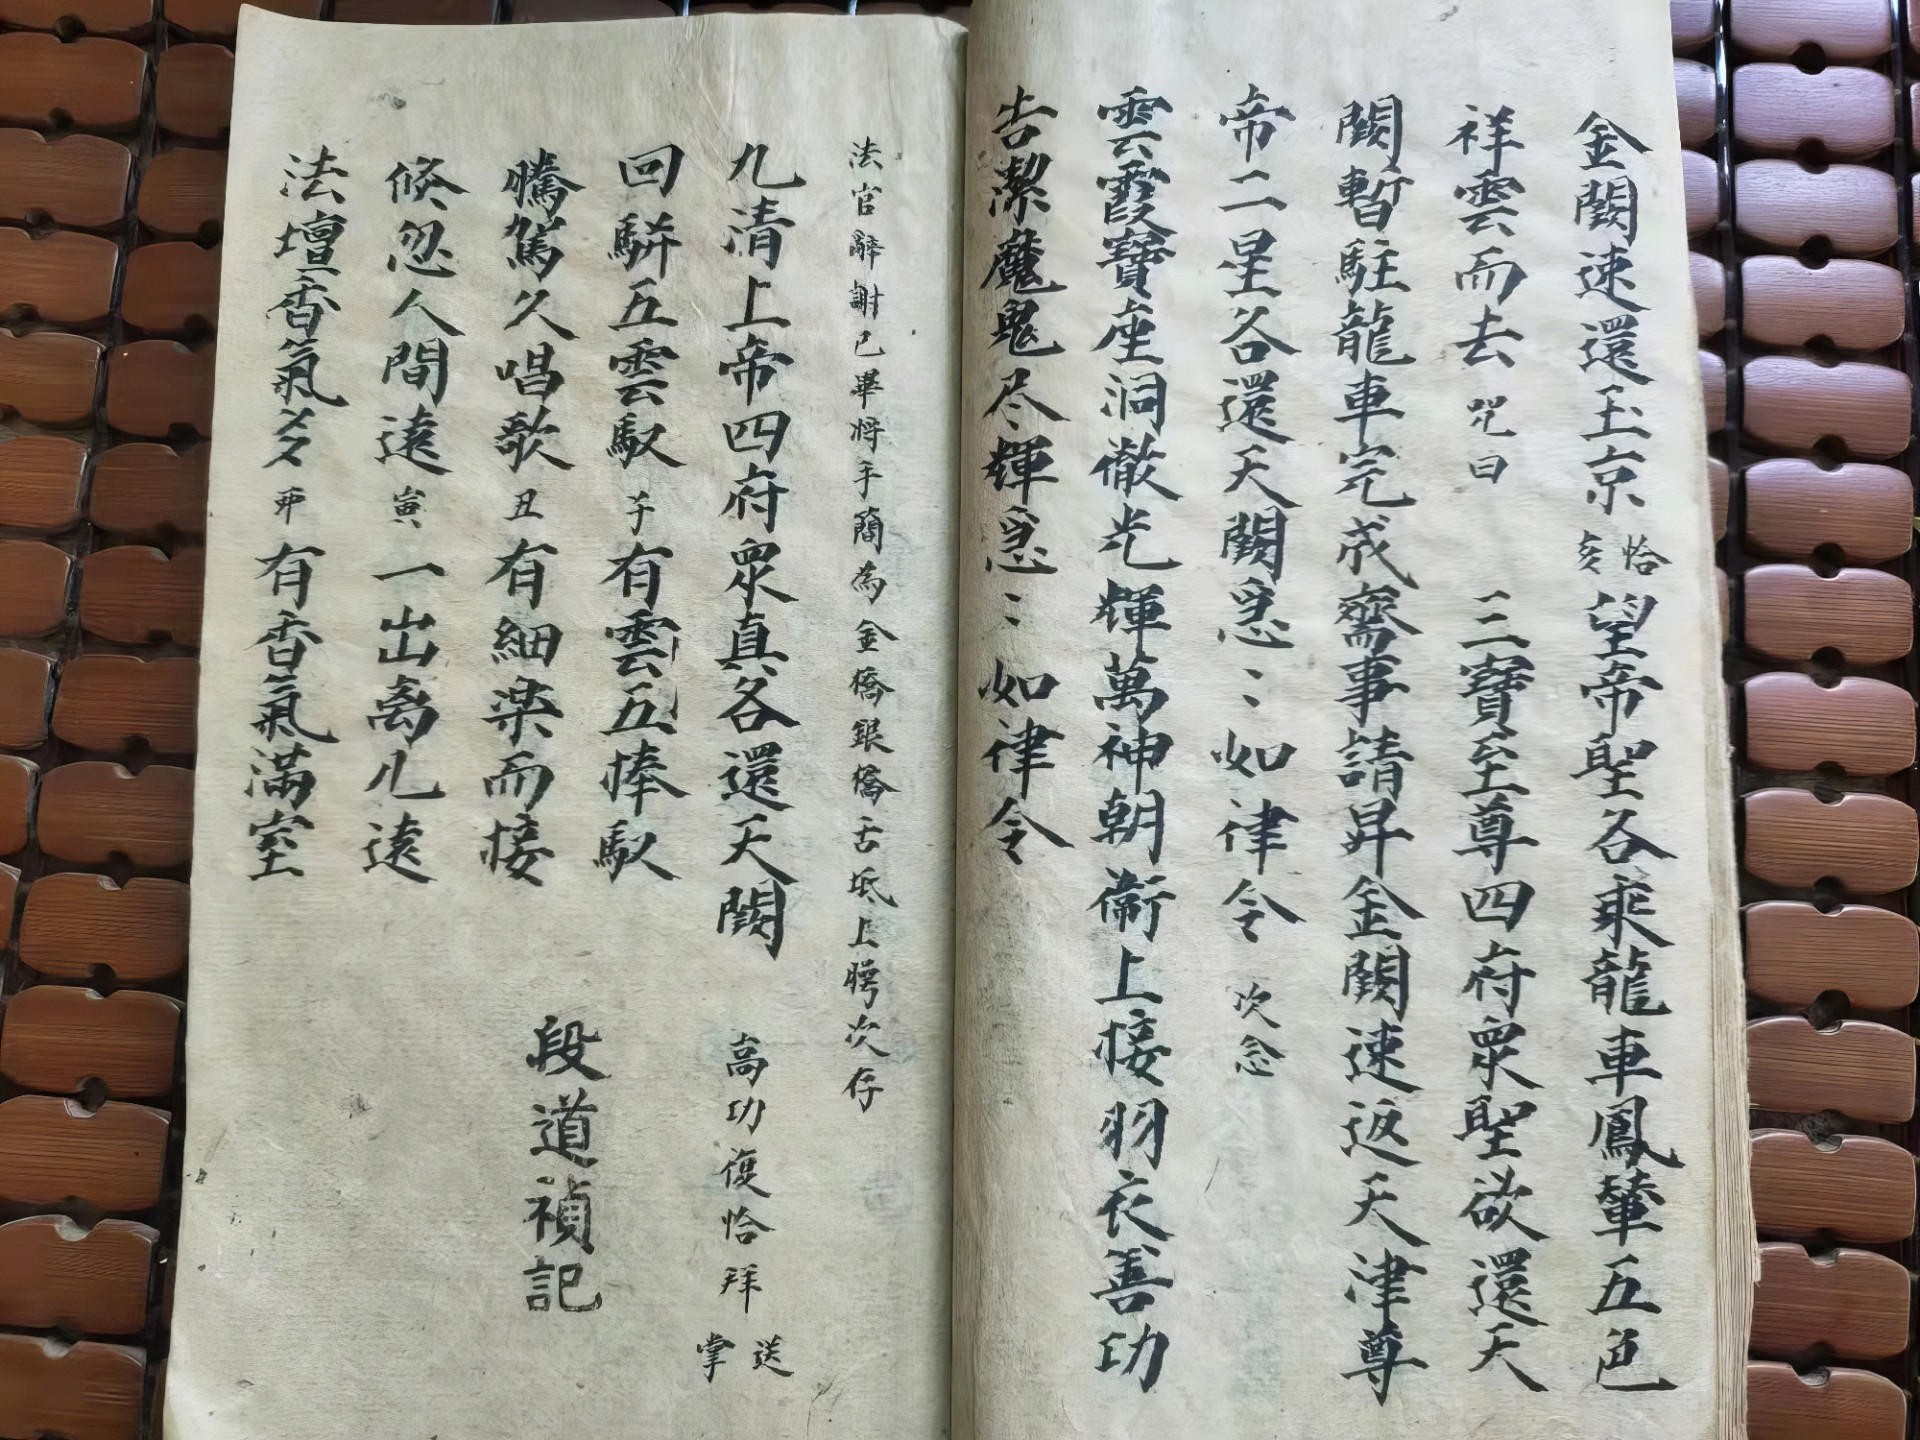 金闕速還玉京恰亥望帝聖各乘龍車鳳輦五色
祥雲而去咒曰 三寶至尊四府眾聖欲還天
闕暫駐龍車完成齋事請昇金闕速返天津尊
帝二星各還天闕急〻如律令次念
雲霞寶座洞徹光輝萬神朝衛上接羽衣善功
告潔魔鬼尽輝急〻如律令
法官辭謝已畢將手簡為金橋銀橋舌坻上腭次存
九清上帝四府眾真各還天闕 高功復恰拜送掌
回駢五雲馭子有雲五捧馭
騰駕久唱歌丑有細楽而接
倏忽人間遠寅一出离凢遠
法壇香氣多夘有香氣滿室
段道禎記